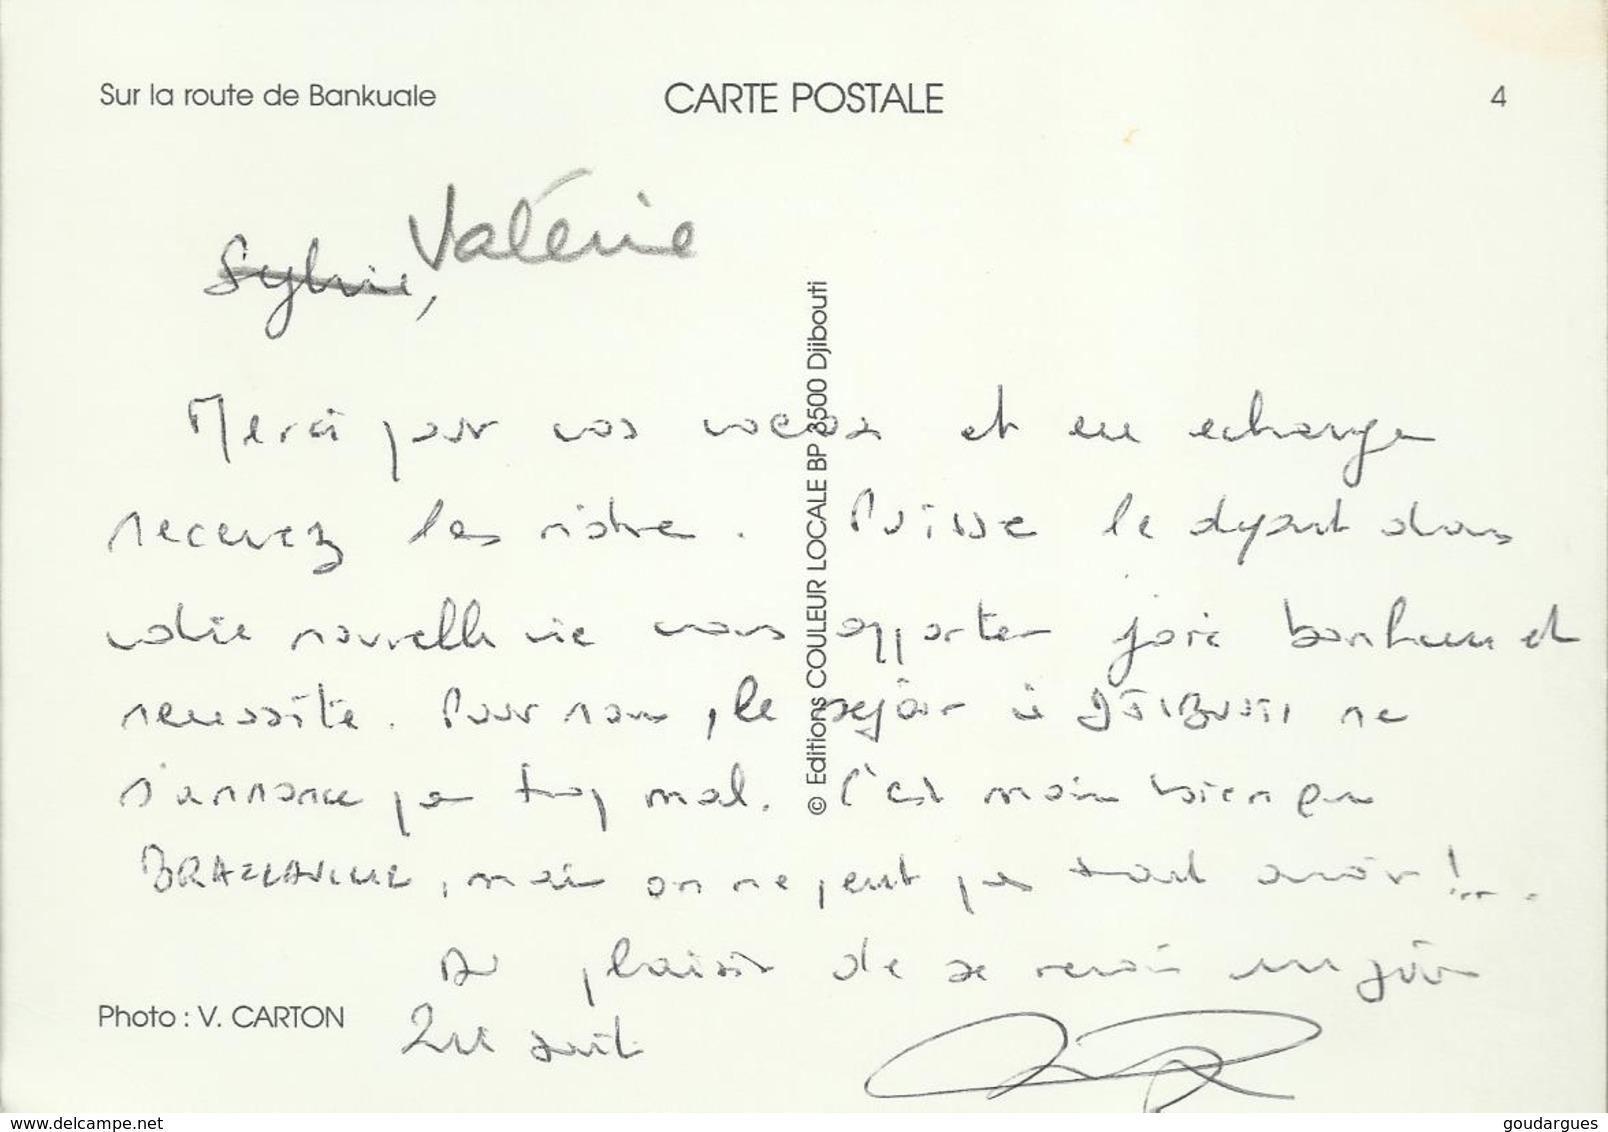 Sur la route de Bankuale
CARTE POSTALE
4
Sylvie, Valérie
Merci pour vos voeux et en echange
recevez les notre. Puisse le depart dans
votre nouvelle vie vous apporter joie bonheur et
reussite. Pour nous, le sejour à DJIBOUTI ne
s'annonce pas trop mal. C'est moins bien que
BRAZZAVILLE, mais on ne peut pas tout avoir !...
Au plaisir de se revoir un jour
© Editions COULEUR LOCALE BP 3500 Djibouti
Photo : V. CARTON
www.delcampe.net
goudargues